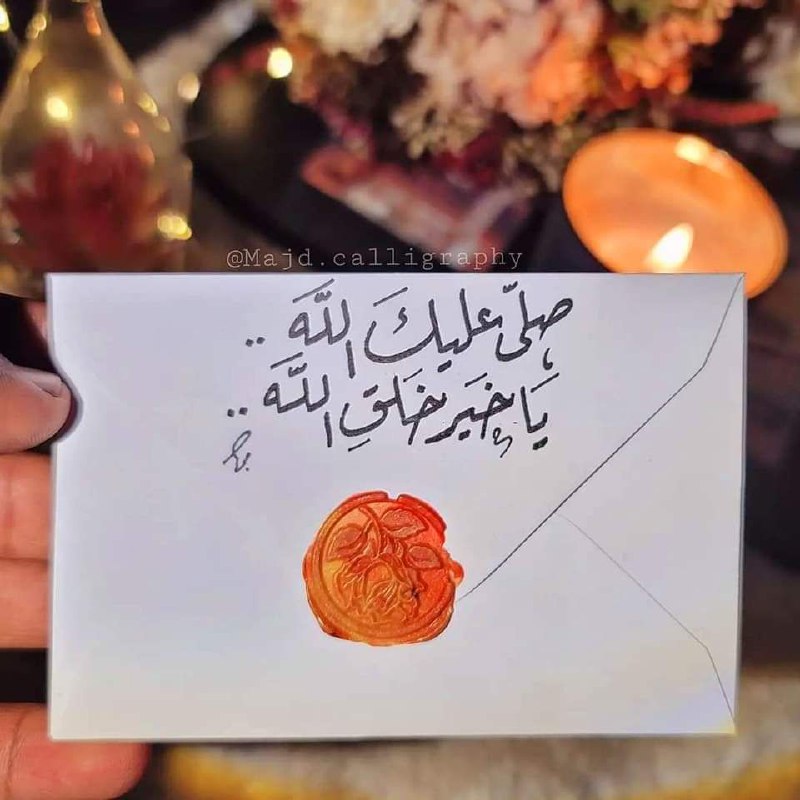 @Majd.calligraphy
صلّى عليكَ اللَّهَ ..
يَا خيَر خَلقِ اللَّهَ ..